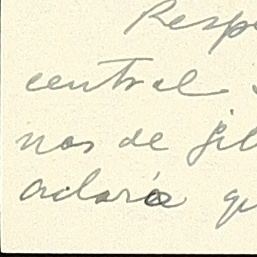 Resp
central
nos de Gil
aclara q